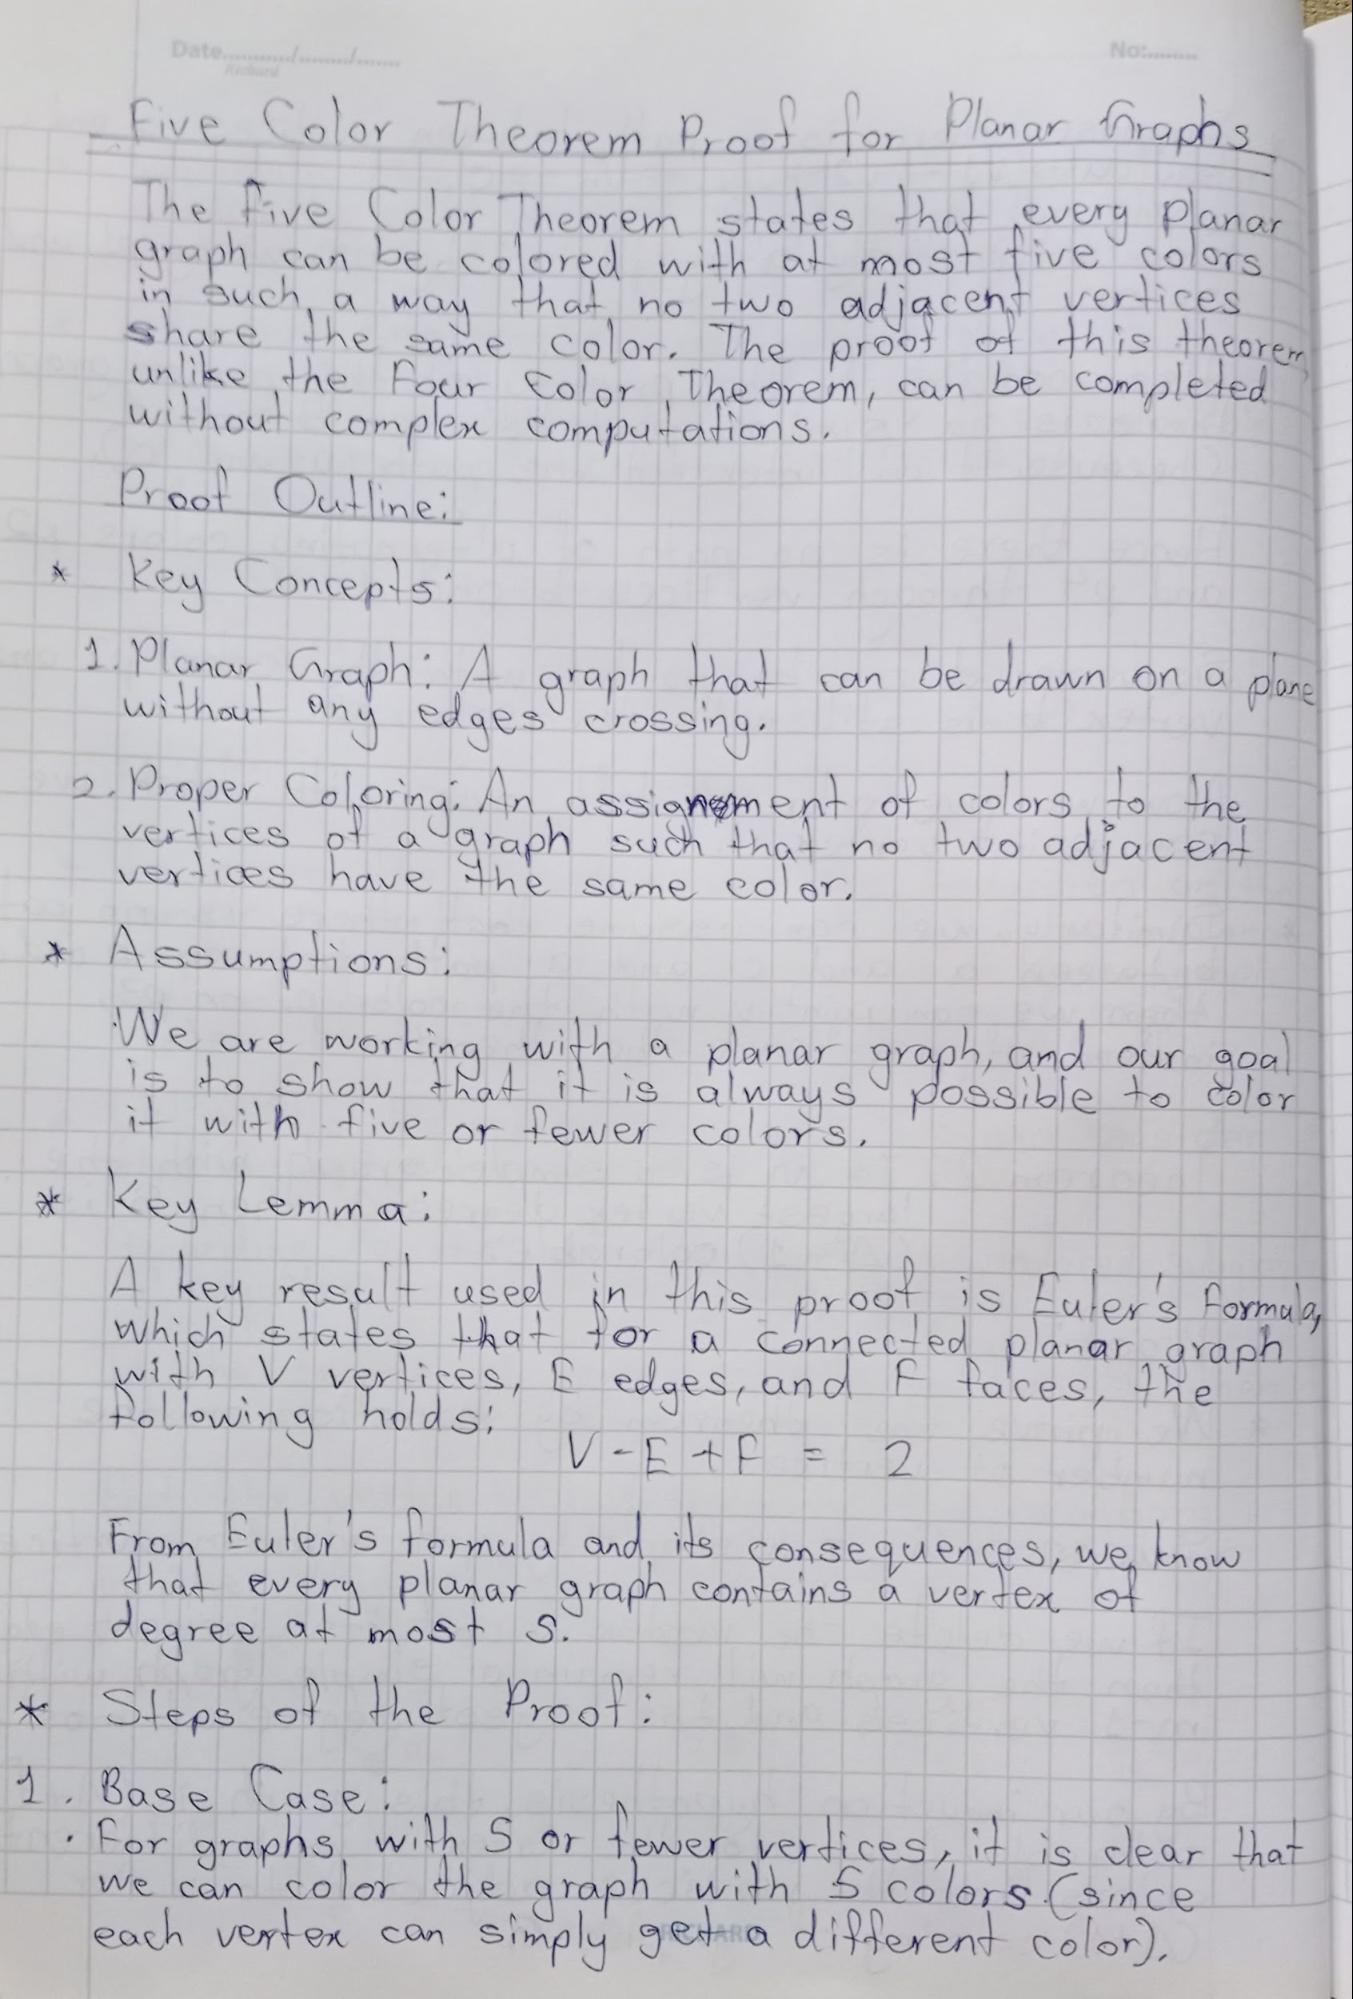 Date........../........./.......
Richard
No:.........
Five Color Theorem Proof for Planar Graphs
The Five Color Theorem states that every planar
graph can be colored with at most five colors
in such a way that no two adjacent vertices
share the same color. The proof of this theorem,
unlike the Four Color Theorem, can be completed
without complex computations.
Proof Outline:
* Key Concepts:
1. Planar Graph: A graph that can be drawn on a plane
without any edges crossing.
2. Proper Coloring: An assignment of colors to the
vertices of a graph such that no two adjacent
vertices have the same color.
* Assumptions:
We are working with a planar graph, and our goal
is to show that it is always possible to color
it with five or fewer colors.
* Key Lemma:
A key result used in this proof is Euler's Formula,
which states that for a connected planar graph
with V vertices, E edges, and F faces, the
following holds:
V - E + F = 2
From Euler's formula and its consequences, we know
that every planar graph contains a vertex of
degree at most 5.
* Steps of the Proof:
1. Base Case:
· For graphs with 5 or fewer vertices, it is clear that
we can color the graph with 5 colors (since
each vertex can simply get a different color).